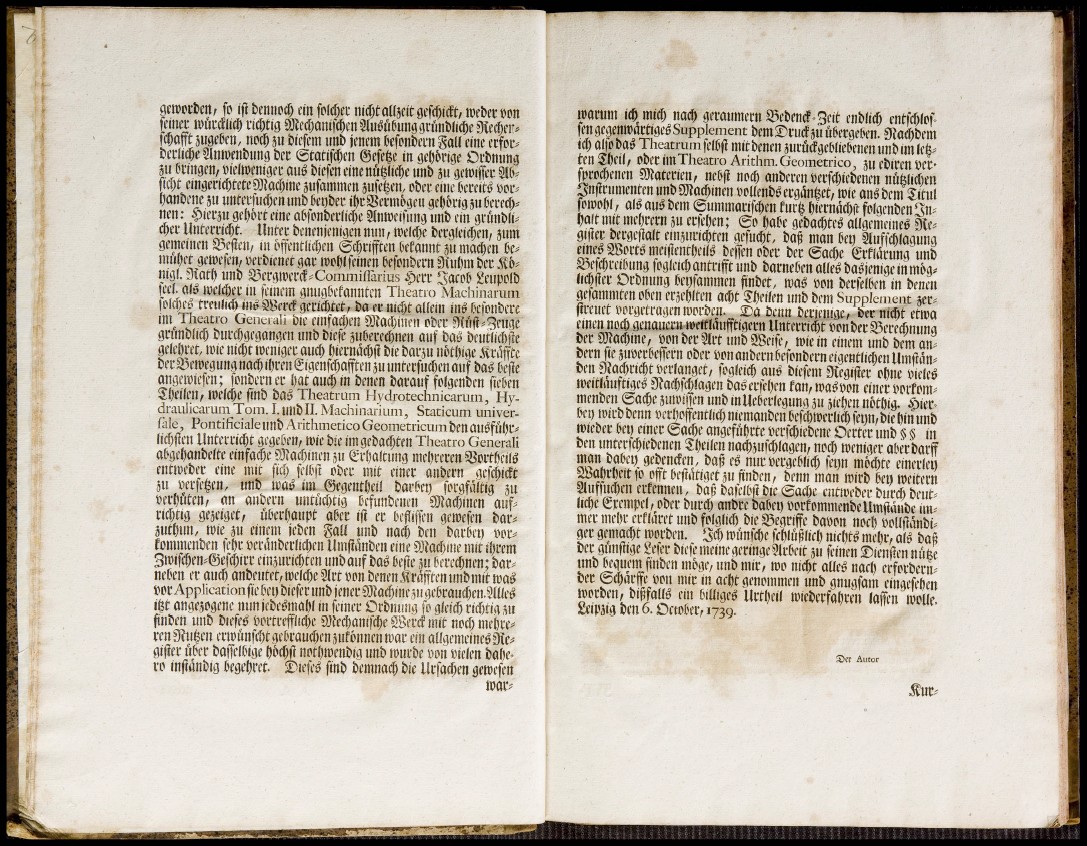 geworden, so ist dennoch ein solcher nicht allzeit geschickt, weder von
seiner würcklich richtig Mechanischen Ausübung gründliche Rechen-
schafft zugeben, noch zu diesem und jenem besondern Fall eine erfor-
derliche Anwendung der Statischen Gesetze in gehörige Ordnung
zu bringen, vielweniger aus diesen eine nützliche und zu gewisser Ab-
sicht eingerichtete Machine zusammen zusetzen, oder eine bereits vor-
handene zu untersuchen und beyder ihr Vermögen gehörig zu berech-
nen: Hierzu gehört eine absonderliche Anweisung und ein gründli-
cher Unterricht. Unter denenjenigen nun, welche dergleichen, zum
gemeinen Besten, in öffentlichen Schrifften bekannt zu machen be-
mühet gewesen, verdienet gar wohl seinen besondern Ruhm der Kö-
nigl. Rath und Bergwerck-Commissarius Herr Jacob Leupold
seel. als welcher in seinem gnugbekannten Theatro Machinarum
solches treulich ins Werck gerichtet, da er nicht allein ins besondere
im Theatro Generali die einfachen Machinen oder Rüst-Zeuge
gründlich durchgegangen und diese zuberechnen auf das deutlichste
gelehret, wie nicht weniger auch hiernächst die darzu nöthige Kräffte
der Bewegung nach ihren Eigenschafften zu untersuchen auf das beste
angewiesen; sondern er hat auch in denen darauf folgenden sieben
Theilen, welche sind das Theatrum Hydrotechnicarum, Hy-
draulicarum Tom. I. und II. Machinarium, Staticum univer-
sale, Pontificiale und Arithmetico Geometricum den ausführ-
lichsten Unterricht gegeben, wie die im gedachten Theatro Generali
abgehandelte einfache Machinen zu Erhaltung mehreren Vortheils
entweder eine mit sich selbst oder mit einer andern geschickt
zu versetzen, und was im Gegentheil darbey sorgfältig zu
verhüten, an andern untüchtig befundenen Machinen auf-
richtig gezeiget, überhaupt aber ist er beflissen gewesen dar-
zuthun, wie zu einem jeden Fall und nach den darbey vor-
kommenden sehr veränderlichen Umständen eine Machine mit ihrem
Zwischen-Geschirr einzurichten und auf das beste zu berechnen; dar-
neben er auch andeutet, welche Art von denen Kräfften und mit was
vor Application sie bey dieser und jener Machine zu gebrauchen. Alles
itzt angezogene nun jedesmahl in seiner Ordnung so gleich richtig zu
finden und dieses vortreffliche Mechanische Werck mit noch mehre-
ren Nutzen erwünscht gebrauchen zu können war ein allgemeines Re-
gister über dasselbige höchst nothwendig und wurde von vielen dahe-
ro inständig begehret. Dieses sind demnach die Ursachen gewesen
war-
warum ich mich nach geraumern Bedenck-Zeit endlich entschlos-
sen gegenwärtiges Supplement dem Druck zu übergeben. Nachdem
ich also das Theatrum selbst mit denen zurückgebliebenen und im letz-
ten Theil, oder im Theatro Arithm. Geometrico, zu ediren ver-
sprochenen Materien, nebst noch anderen verschiedenen nützlichen
Instrumenten und Machinen vollends ergäntzet, wie aus dem Titul
sowohl, als aus dem Summarischen kurtz hiernächst folgenden In-
halt mit mehrern zu ersehen; So habe gedachtes allgemeines Re-
gister dergestalt einzurichten gesucht, daß man bey Aufschlagung
eines Worts meistentheils dessen oder der Sache Erklärung und
Beschreibung sogleich antrifft und darneben alles dasjenige in mög-
lichster Ordnung beysammen findet, was von derselben in denen
gesammten oben erzehlten acht Theilen und dem Supplement zer-
streuet vorgetragen worden. Da denn derjenige, der nicht etwa
einen noch genauern weitläufftigern Unterricht von der Berechnung
der Machine, von der Art und Weise, wie in einem und dem an-
dern sie zuverbessern oder von andern besondern eigentlichen Umstän-
den Nachricht verlanget, sogleich aus diesem Register ohne vieles
weitläuftiges Nachschlagen das ersehen kan, was von einer vorkom-
menden Sache zuwissen und in Ueberlegung zu ziehen nöthig. Hier-
bey wird denn verhoffentlich niemanden beschwerlich seyn, die hin und
wieder bey einer Sache angeführte verschiedene Oerter und §§ in
den unterschiedenen Theilen nachzuschlagen, noch weniger aber darff
man dabey gedencken, daß es nur vergeblich seyn möchte einerley
Wahrheit so offt bestätiget zu finden, denn man wird bey weitern
Aufsuchen erkennen, daß daselbst die Sache entweder durch deut-
liche Exempel, oder durch andre dabey vorkommende Umstände im-
mer mehr erkläret und folglich die Begriffe davon noch vollständi-
ger gemacht worden. Ich wünsche schlüßlich nichts mehr, als daß
der günstige Leser diese meine geringe Arbeit zu seinen Diensten nütze
und bequem finden möge, und mir, wo nicht alles nach erfordern-
der Schärffe von mir in acht genommen und gnugsam eingesehen
worden, dißfalls ein billiges Urtheil wiederfahren lassen wolle.
Leipzig den 6. October, 1739.
Der Autor
Kur-